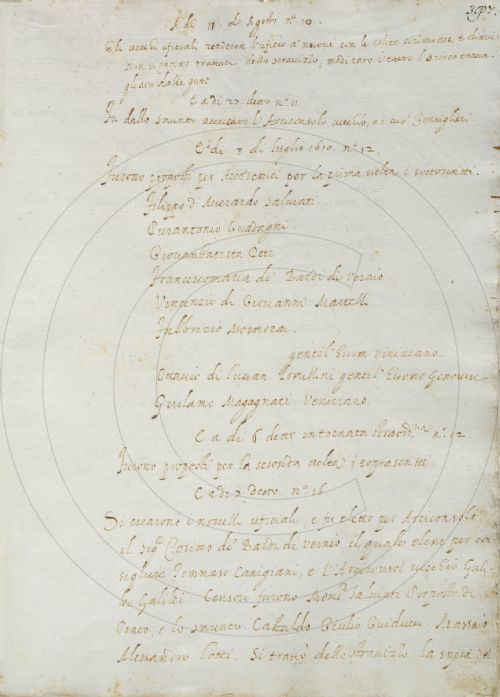 A di 11. do Agosto n.° 10.
Gli vecchi ufiziali renderon l'ufizio a' nuovi con le solite cirimonie, e
non si potette trattare dello stravizzo, mediante l'essere l'Arcico trava-
gliato dalle gotte
E a di 27 detto n.° 11
Fu dallo Smunto accusato l'Arciconsolo vecchio, e i suoi Consiglieri.
E a di 3 di Luglio 1610. n.° 12.
Furono proposti per Accademici per la prima volta i sottoscritti.
Filippo d'Averardo Salviati
Pierantonio Guadagni
Giovambatista Deti
Francescomaria de' Bardi di Vernio
Vincenzio di Giovanni Martelli
gentil'huom viniziano.
Ottavio di Lucian gentil'huomo Genovese
Girolamo Magagnati Veneziano.
E a di 6. detto in tornata straord.ria n.° 12.
Furono proposti per la seconda volta i soprascritti.
E a di 7. Detto. n.° 16
Si crearono i novelli ufiziali, e fu eletto per Arciconsolo
il Sig.r Cosimo de' Bardi di Vernio il quale elesse per con
sigliere Tommaso Canigiani, e l'Arciconsol vecchio Gali-
leo Galilei. Censori furono Mons.r Salviati Proposto di
Prato, e lo Smunto. Castaldo Giulio Guiducci. Massaio
Alessandro Sotti. Si trattò dello stravizzo. la spesa